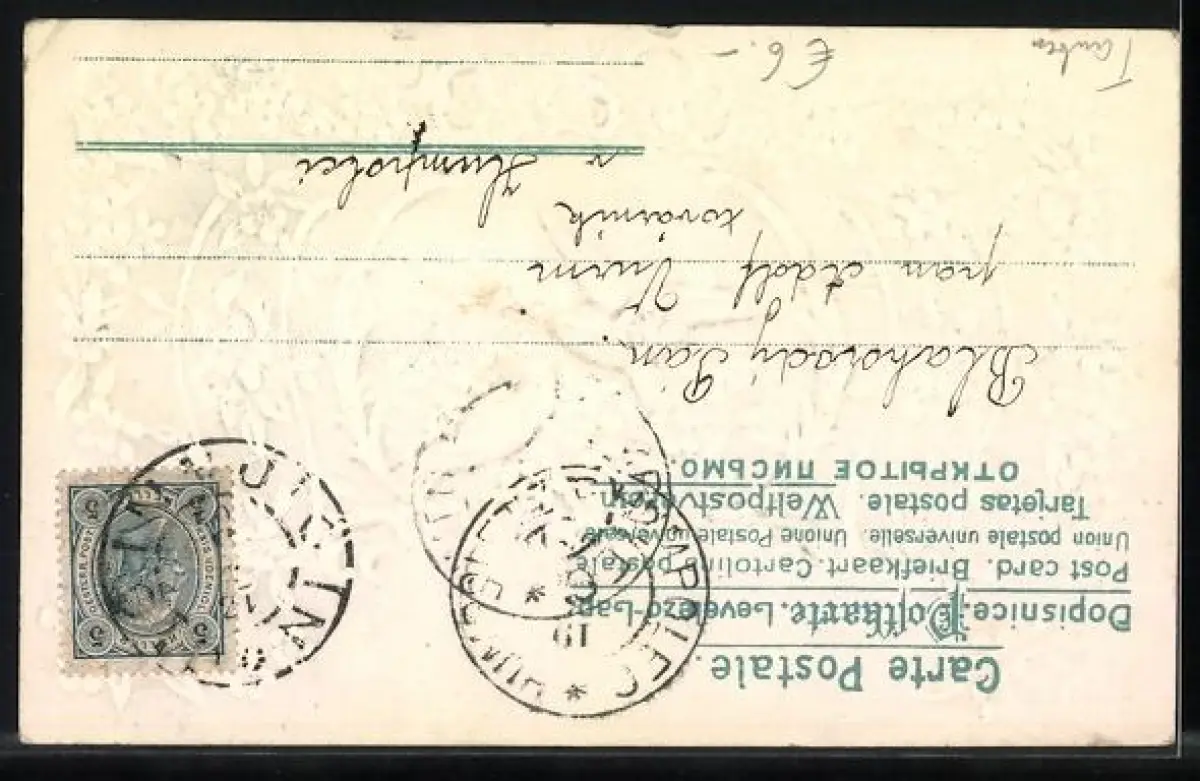 Carte Postale.
Dopisnice. Postkarte. Levelező-Lap.
Post card. Briefkaart. Cartolina postale
Union postale universelle. Unione Postale universale
Tarjetas postale. Weltpostverein.
ОТКРЫТОЕ ПИСЬМО.
5 5
HUMPOLEC HUMPOLETZ
19
Blahorodý Pán.
pan Adolf Wurm
továrník
v Humpolci
€ 6.-